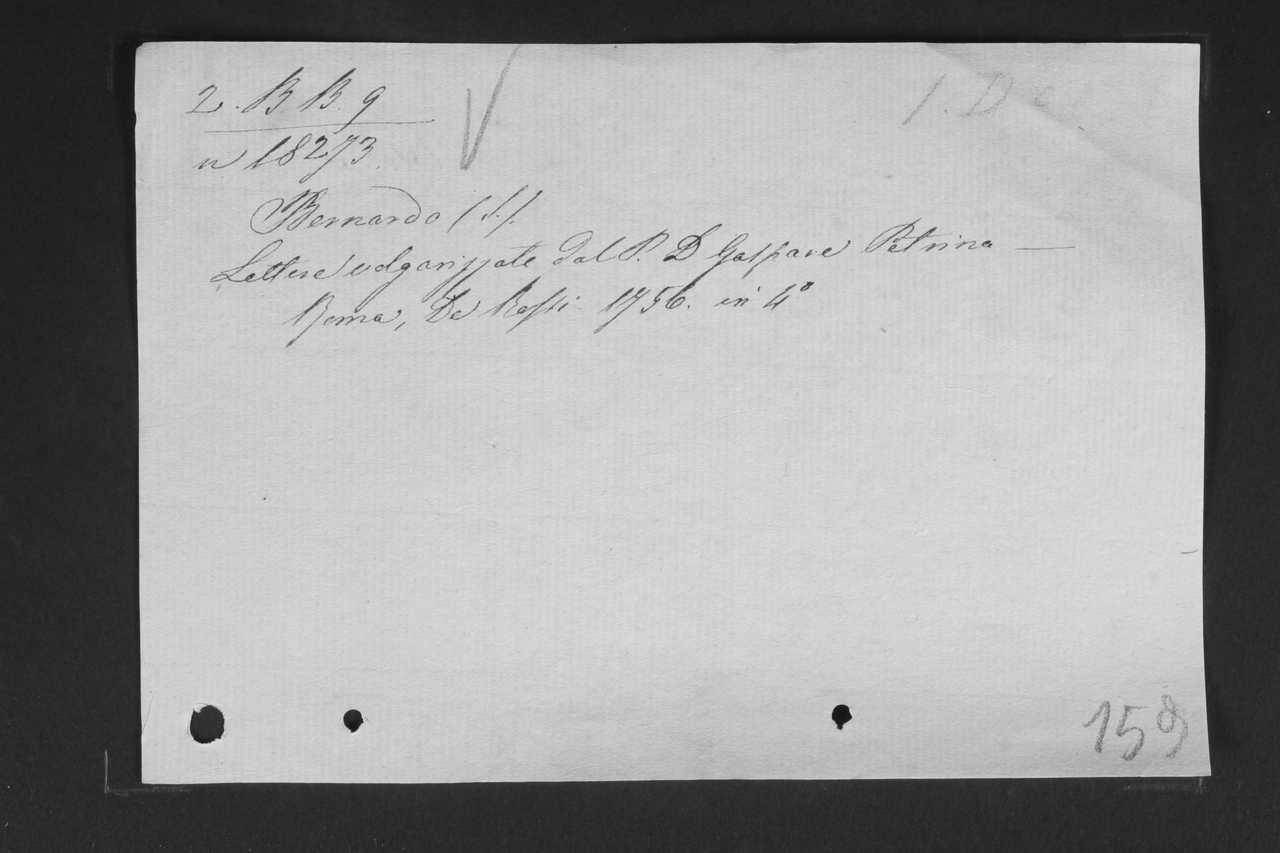 2. B B. 9
n 18273.
Bernardo (S.).
Lettere volgarizzate dal P. D Gaspare Petrina —
Roma, De Rossi 1756. in 4º
159